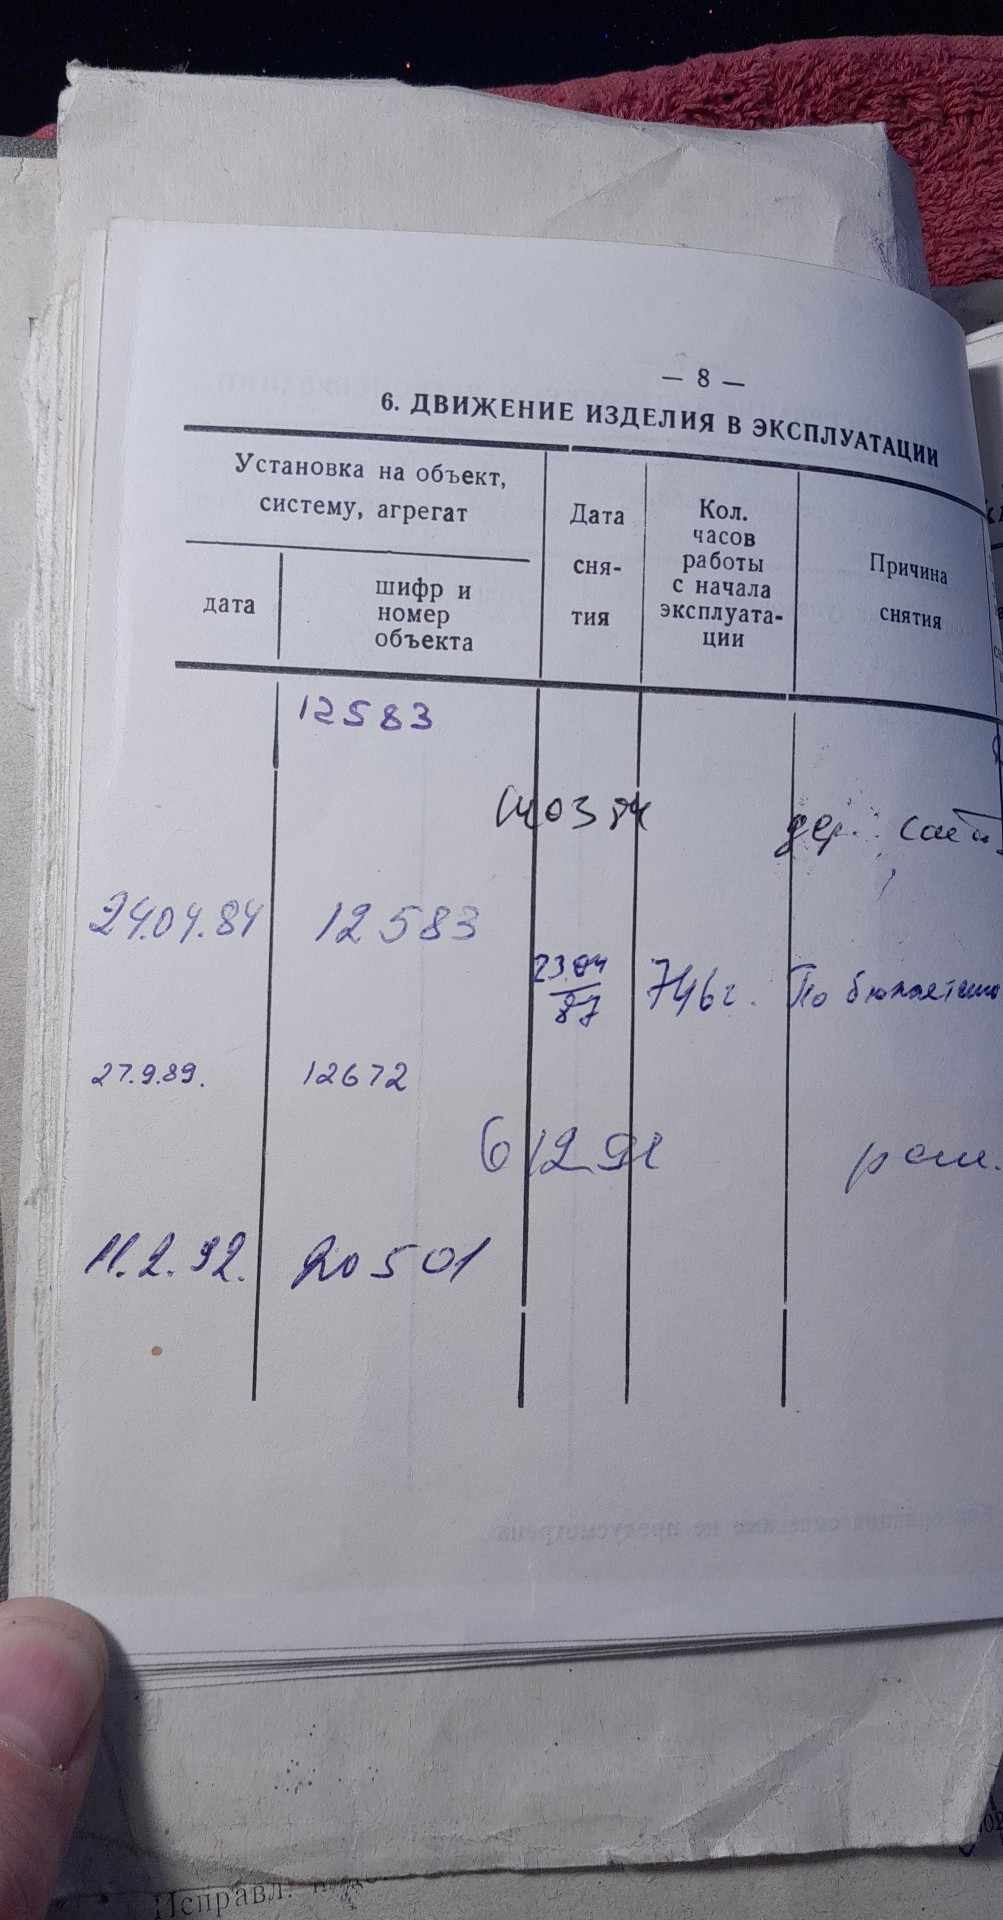 — 8 —
6. ДВИЖЕНИЕ ИЗДЕЛИЯ В ЭКСПЛУАТАЦИИ
Установка на объект,
систему, агрегат
дата
шифр и
номер
объекта
Дата
сня-
тия
Кол.
часов
работы
с начала
эксплуата-
ции
Причина
снятия
12583
140384
24.04.84 12583
23.04
87
746г. По бюллетеню
27.9.89. 12672
61291
рем.
11.2.92. 20501
Исправл.